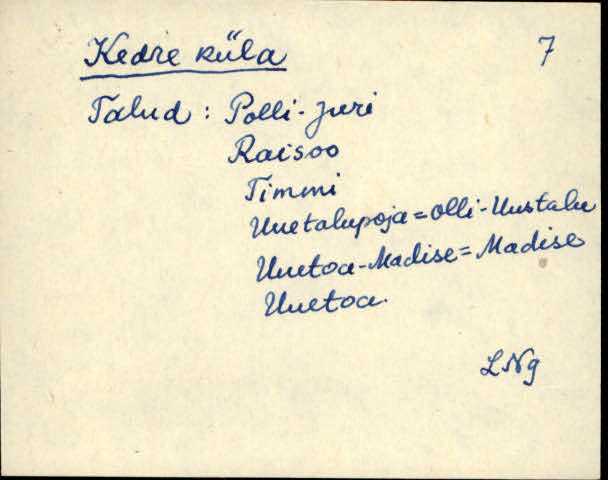 Kedre küla 7
Talud: Polli-Jüri
Raisoo
Timmi
Uuetalupoja=Olli-Uustalu
Uuetoa-Madise=Madise
Uuetoa.
LNg